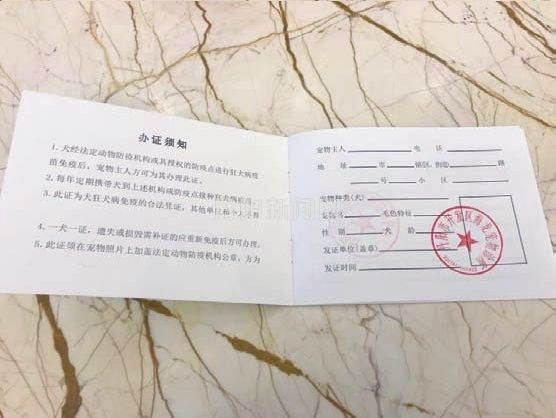 办证须知
1. 犬经法定动物防疫机构或其授权的防疫点进行狂犬病疫
苗免疫后，宠物主人方可为其办理此证。
2. 每年定期携带犬到上述机构或防疫点接种狂犬病疫苗。
3. 此证为犬狂犬病免疫的合法凭证，其他单位和个人不得
4. 一犬一证，遗失或损毁需补证的应重新免疫后方可办理。
5. 此证须在宠物照片上加盖法定动物防疫机构公章，方为
宠物主人 电 话
地 址 市 镇(区、街道) 路
号 小 区
宠物种类(犬)
毛色特征
性 别 犬 龄
发证单位(盖章)
发证时间